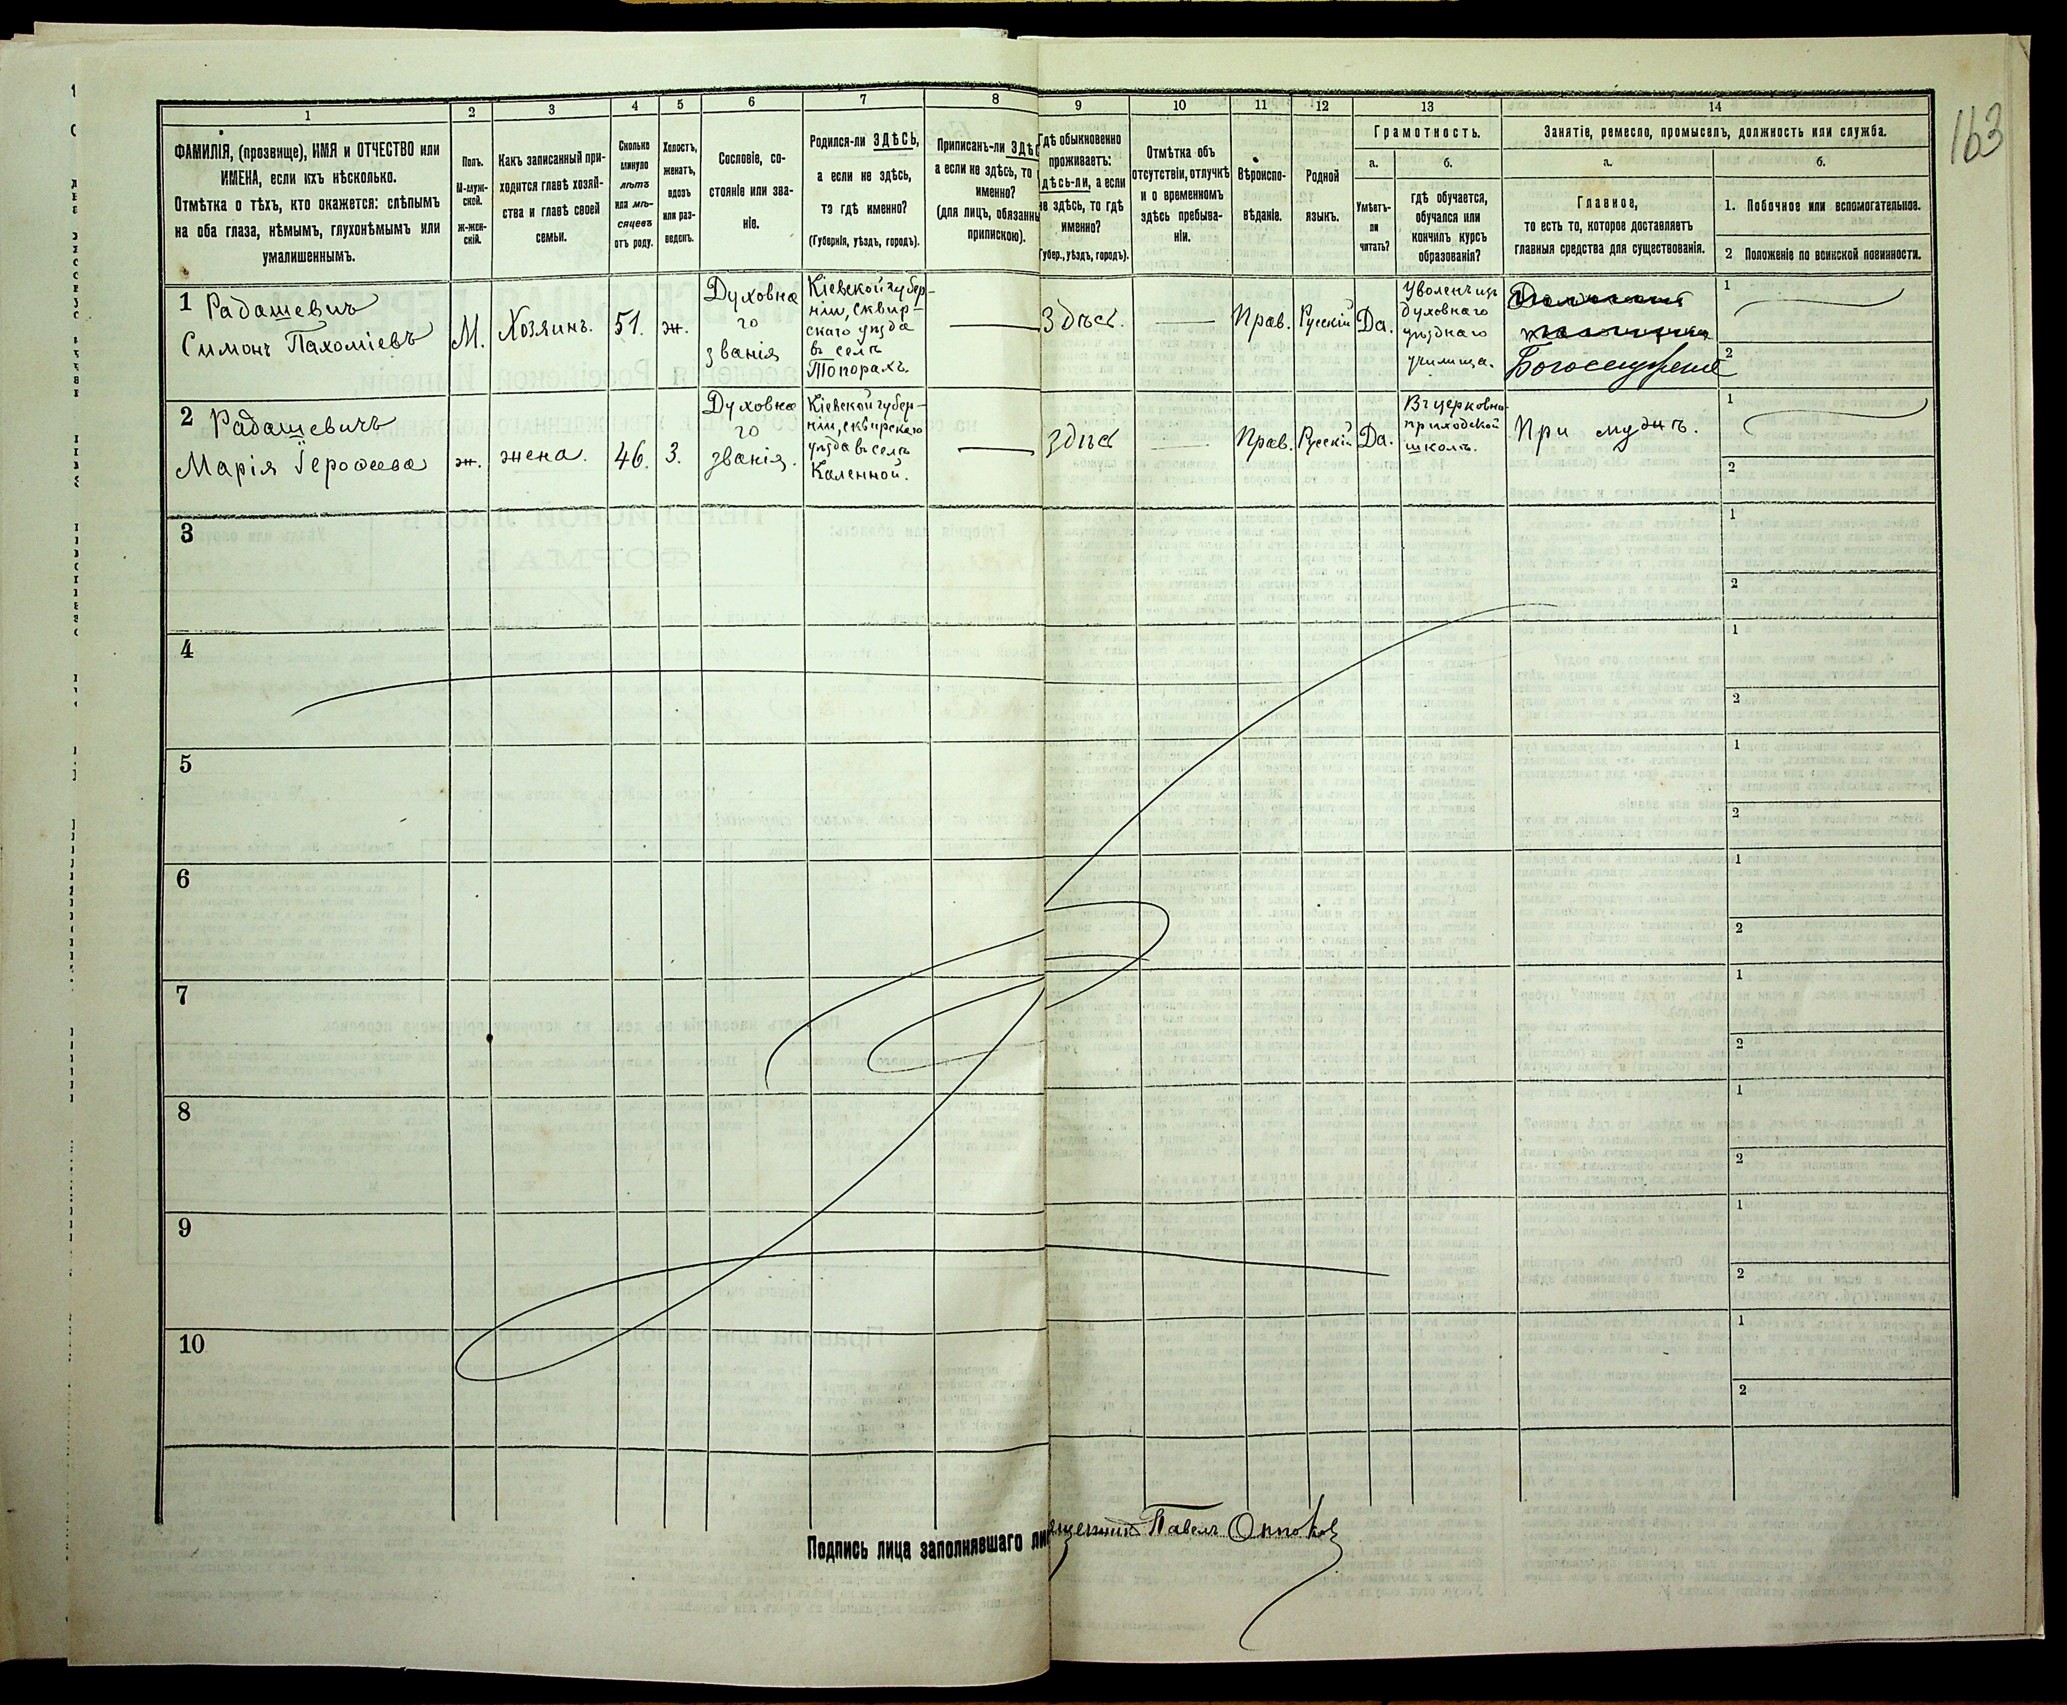 163
1 2 3 4 5 6 7 8 9 10 11 12 13 14
ФАМИЛІЯ, (прозвище), ИМЯ и ОТЧЕСТВО или
ИМЕНА, если ихъ нѣсколько.
Отмѣтка о тѣхъ, кто окажется: слѣпымъ
на оба глаза, нѣмымъ, глухонѣмымъ или
умалишеннымъ.
Полъ.
М-муж-
ской.
ж-жен-
скій.
Какъ записанный при-
ходится главѣ хозяй-
ства и главѣ своей
семьи.
Сколько
минуло
лѣтъ
или мѣ-
сяцевъ
отъ роду.
Холостъ,
женатъ,
вдовъ
или раз-
веденъ.
Сословіе, со-
стояніе или зва-
ніе.
Родился-ли ЗДѢСЬ,
а если не здѣсь,
то гдѣ именно?
(Губернія, уѣздъ, городъ).
Приписанъ-ли ЗДѢ
а если не здѣсь, то
именно?
(для лицъ, обязанны
припискою).
Гдѣ обыкновенно
проживаетъ:
здѣсь-ли, а если
не здѣсь, то гдѣ
именно?
Губер., уѣздъ, городъ).
Отмѣтка объ
отсутствіи, отлучкѣ
и о временномъ
здѣсь пребыва-
ніи.
Вѣроиспо-
вѣданіе.
Родной
языкъ.
Грамотность.
а.
Умѣетъ-
ли
читать?
б.
гдѣ обучается,
обучался или
кончилъ курсъ
образованія?
Занятіе, ремесло, промыселъ, должность или служба.
а.
Главное,
то есть то, которое доставляетъ
главныя средства для существованія.
б.
1. Побочное или вспомогательное.
2 Положеніе по воинской повинности.
1 Радашевичъ
Симонъ Пахоміевъ
М.
Хозяинъ.
51.
ж.
Духовна
го
званія
Кіевской губер-
ніи, сквир-
скаго уѣзда
въ селѣ
Топорахъ.
Здѣсь.
Прав.
Русскій
Да.
Уволенъ изъ
духовнаго
уѣзднаго
училища.
Богослуженіе
1
2
2 Радашевичъ
Марія Іерофеева
ж.
жена.
46.
З.
Духовна
го
званія.
Кіевской губер-
ніи, сквирскаго
уѣзда въ селѣ
Каленной.
Здѣсь
Прав.
Русскій
Да.
Въ церковно-
приходской
школѣ.
При мужѣ.
1
2
3
1
2
4
1
2
5
1
2
6
1
2
7
1
2
8
1
2
9
1
2
10
1
2
Подпись лица заполнявшаго ли
ященникъ Павелъ